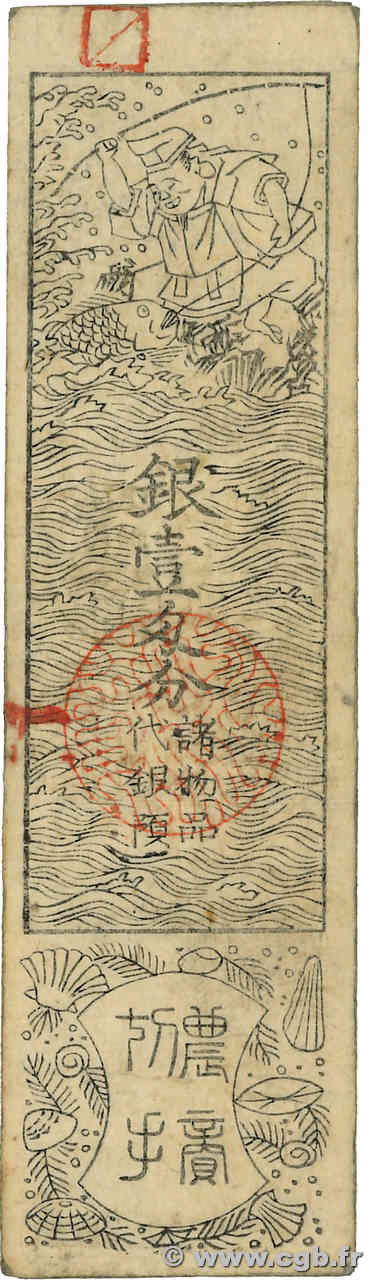 銀壹匁分
諸物品
代銀預
農
切手
© www.cgb.fr